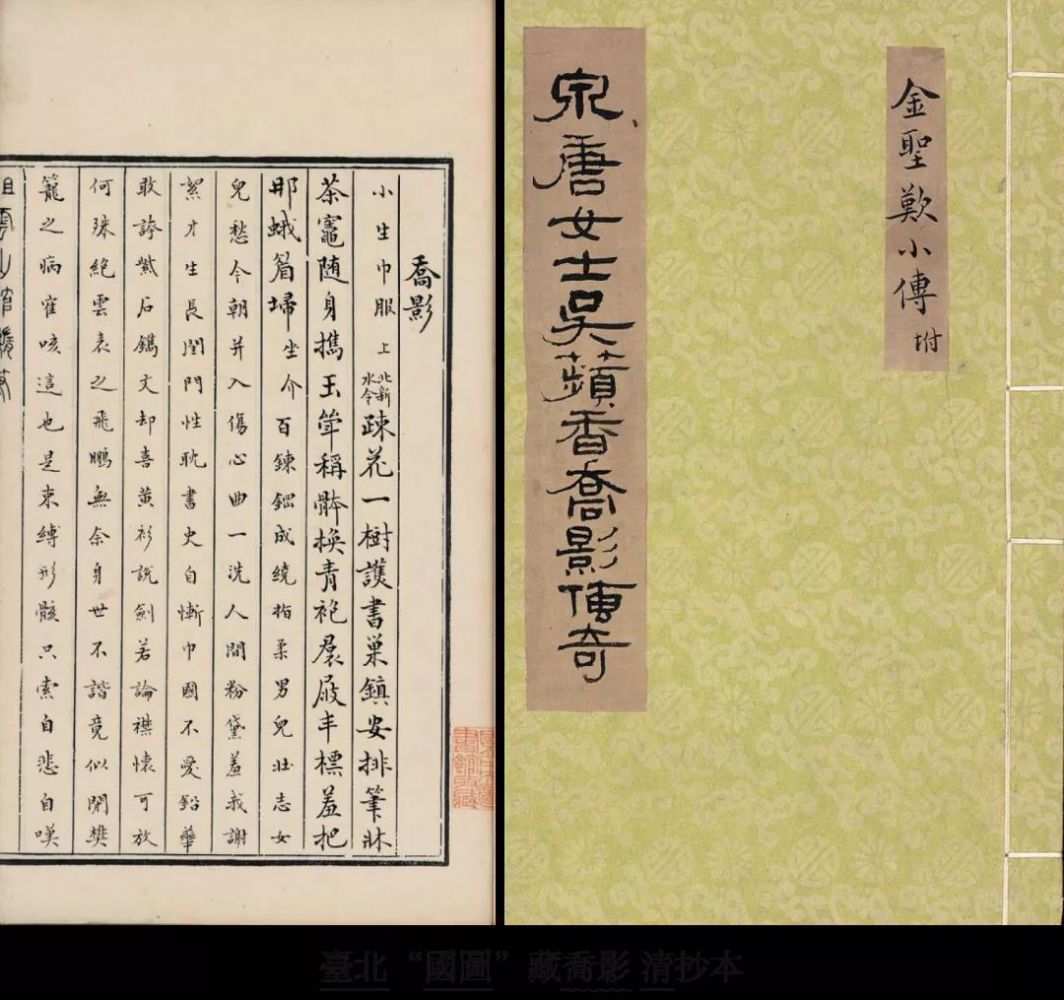 金聖歎小傳 坿
泉唐女士吳蘋香喬影傳奇
喬影
小生巾服上北新水令疎花一樹護書巢鎮安排筆牀
茶竈随身攜玉斝稱骵換青袍裠屐丰標羞把
那蛾眉埽坐介百鍊鋼成繞指柔男兒壯志女
兒愁今朝并入傷心曲一洗人間粉黛羞我謝
絮才生長閨門性耽書史自慚巾幗不愛鉛華
敢誇紫石鐫文却喜黃衫說劍若論襟懷可放
何殊絕雲表之飛鵬無奈身世不諧竟似閉樊
籠之病隺咳這也是束縛形骸只索自悲自嘆
臺北“國圖”藏喬影 清抄本